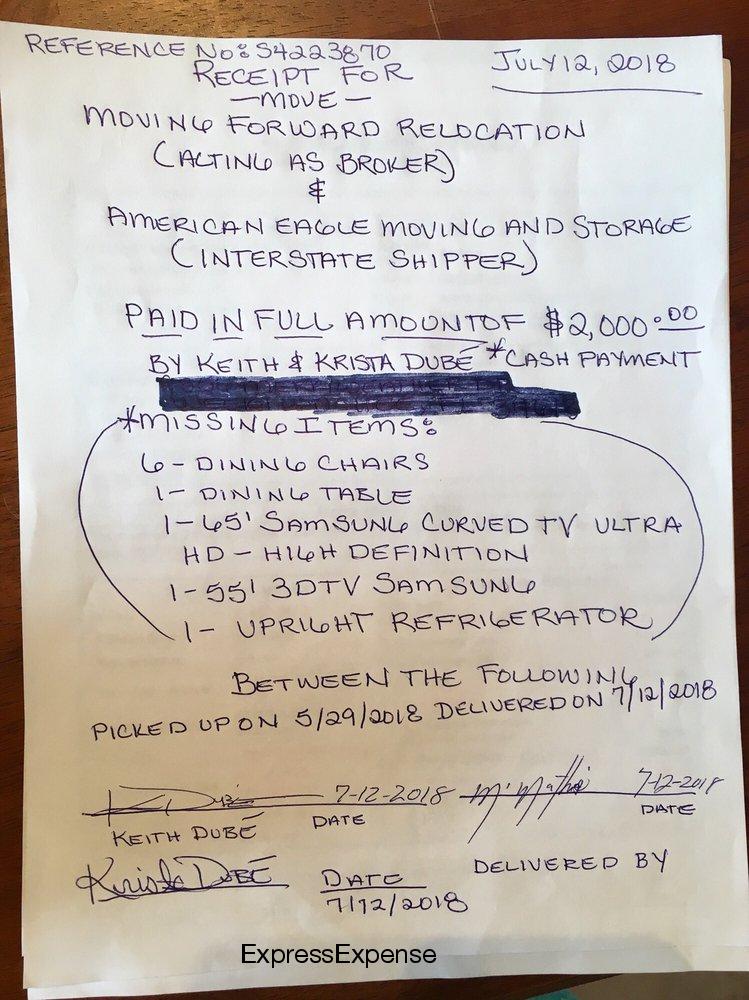 REFERENCE NO: S4223870
JULY 12, 2018
RECEIPT FOR
—MOVE—
MOVING FORWARD RELOCATION
(ACTING AS BROKER)
&
AMERICAN EAGLE MOVING AND STORAGE
(INTERSTATE SHIPPER)
PAID IN FULL AMOUNT OF $2,000.00
BY KEITH & KRISTA DUBÉ *CASH PAYMENT
*MISSING ITEMS:
6 - DINING CHAIRS
1 - DINING TABLE
1 - 65' SAMSUNG CURVED TV ULTRA
HD - HIGH DEFINITION
1 - 55' 3DTV SAMSUNG
1 - UPRIGHT REFRIGERATOR
BETWEEN THE FOLLOWING
PICKED UP ON 5/29/2018 DELIVERED ON 7/12/2018
7-12-2018 7-12-2018
KEITH DUBÉ DATE DATE
Krista DUBÉ DATE DELIVERED BY
7/12/2018
ExpressExpense